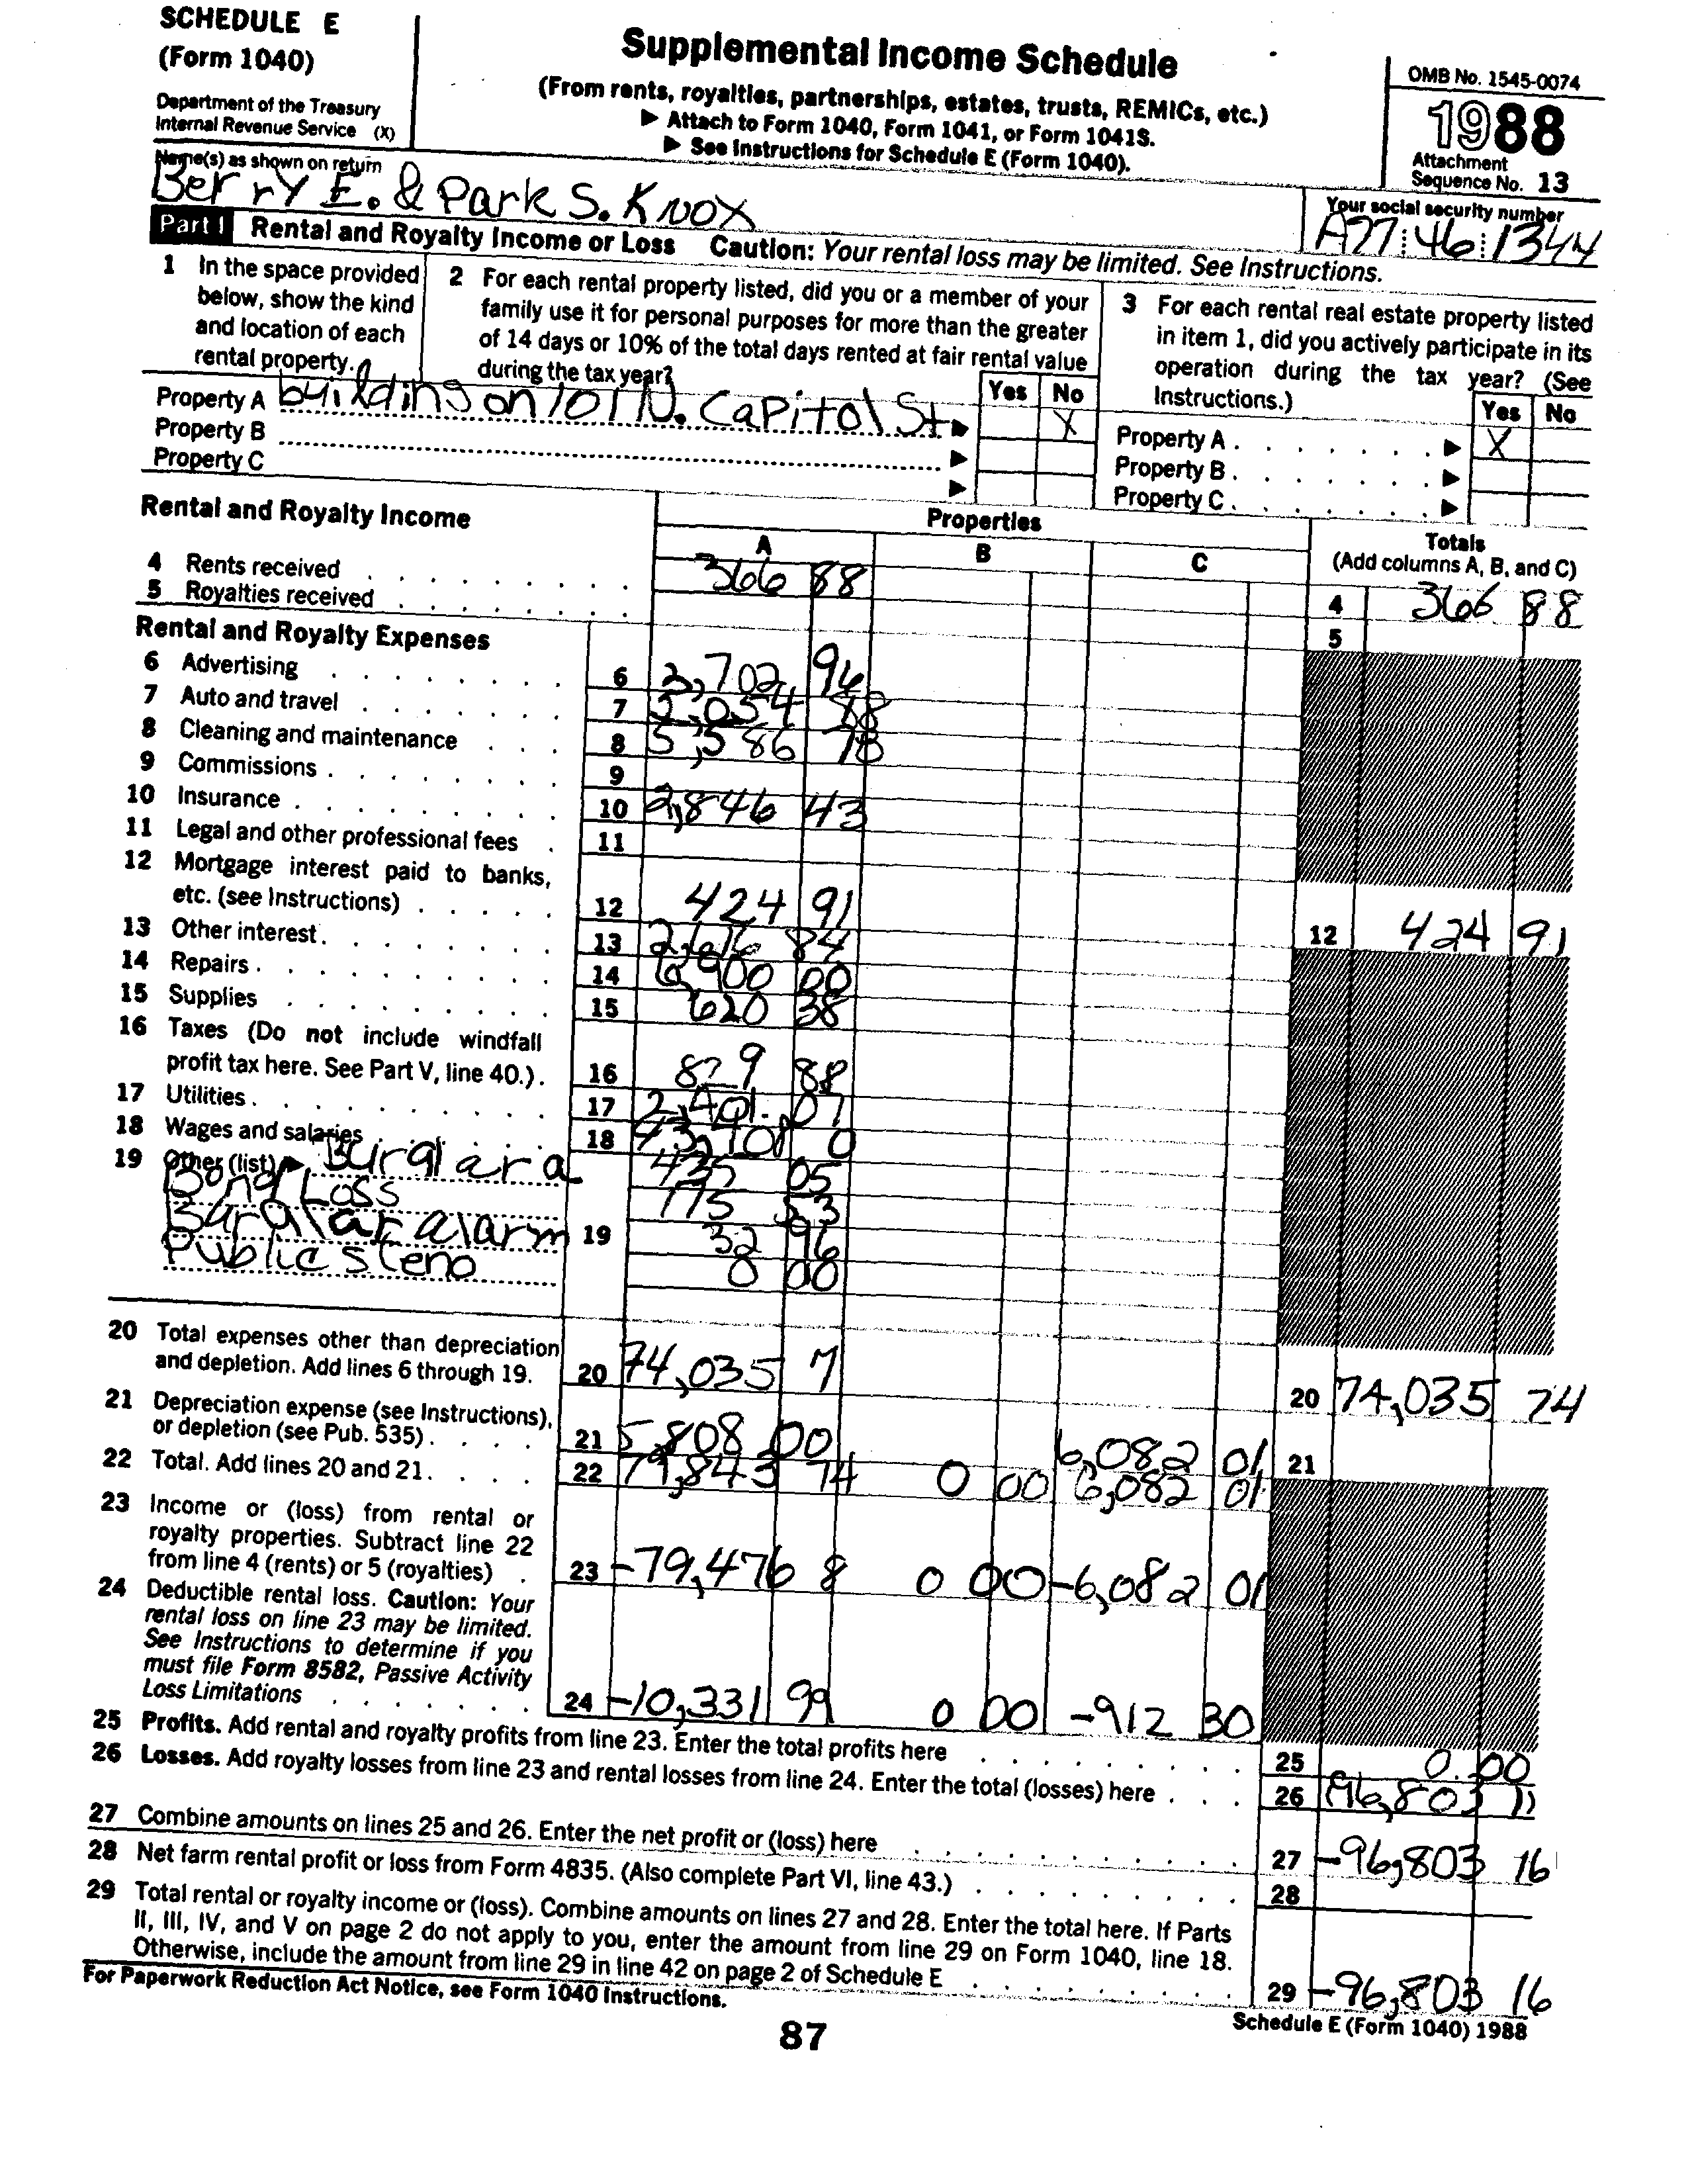 SCHEDULE E
(Form 1040)
Department of the Treasury
Internal Revenue Service (X)
Supplemental Income Schedule
(From rents, royalties, partnerships, estates, trusts, REMICs, etc.)
▶ Attach to Form 1040, Form 1041, or Form 1041S.
▶ See Instructions for Schedule E (Form 1040).
OMB No. 1545-0074
1988
Attachment
Sequence No. 13
Name(s) as shown on return
Berry E. & Park S. Knox
Your social security number
A77 46 1344
Part I Rental and Royalty Income or Loss Caution: Your rental loss may be limited. See Instructions.
1 In the space provided below, show the kind and location of each rental property.
2 For each rental property listed, did you or a member of your family use it for personal purposes for more than the greater of 14 days or 10% of the total days rented at fair rental value during the tax year?
Yes No
Property A building on 101 N. Capitol St ▶ X
Property B ▶
Property C ▶
3 For each rental real estate property listed in item 1, did you actively participate in its operation during the tax year? (See Instructions.)
Yes No
Property A . . . ▶ X
Property B . . . ▶
Property C . . . ▶
Rental and Royalty Income
Properties
A B C
Totals
(Add columns A, B, and C)
4 Rents received 366 88 4 366 88
5 Royalties received 5
Rental and Royalty Expenses
6 Advertising 6 702 96
7 Auto and travel 7 2,054 88
8 Cleaning and maintenance 8 5,586 78
9 Commissions 9
10 Insurance 10 2,846 43
11 Legal and other professional fees 11
12 Mortgage interest paid to banks,
etc. (see Instructions) 12 424 91 12 424 91
13 Other interest 13 84
14 Repairs 14 6,900 00
15 Supplies 15 620 38
16 Taxes (Do not include windfall
profit tax here. See Part V, line 40.) 16 829 88
17 Utilities 17 07
18 Wages and salaries 18 0
19 Other (list) ▶ Burglar a 435 05
Bond Loss 175
Burglar alarm 19 32 96
Public steno 0 00
20 Total expenses other than depreciation
and depletion. Add lines 6 through 19. 20 74,035 7 20 74,035 74
21 Depreciation expense (see Instructions),
or depletion (see Pub. 535) 21 5,808 00 6,082 01 21
22 Total. Add lines 20 and 21 22 79,843 74 0 00 6,082 01
23 Income or (loss) from rental or
royalty properties. Subtract line 22
from line 4 (rents) or 5 (royalties) 23 -79,476 8 0 00 -6,082 01
24 Deductible rental loss. Caution: Your
rental loss on line 23 may be limited.
See Instructions to determine if you
must file Form 8582, Passive Activity
Loss Limitations 24 -10,331 99 0 00 -912 30
25 Profits. Add rental and royalty profits from line 23. Enter the total profits here 25 0.00
26 Losses. Add royalty losses from line 23 and rental losses from line 24. Enter the total (losses) here 26 96,803
27 Combine amounts on lines 25 and 26. Enter the net profit or (loss) here 27 -96,803 16
28 Net farm rental profit or loss from Form 4835. (Also complete Part VI, line 43.) 28
29 Total rental or royalty income or (loss). Combine amounts on lines 27 and 28. Enter the total here. If Parts
II, III, IV, and V on page 2 do not apply to you, enter the amount from line 29 on Form 1040, line 18.
Otherwise, include the amount from line 29 in line 42 on page 2 of Schedule E 29 -96,803 16
For Paperwork Reduction Act Notice, see Form 1040 Instructions.
Schedule E (Form 1040) 1988
87